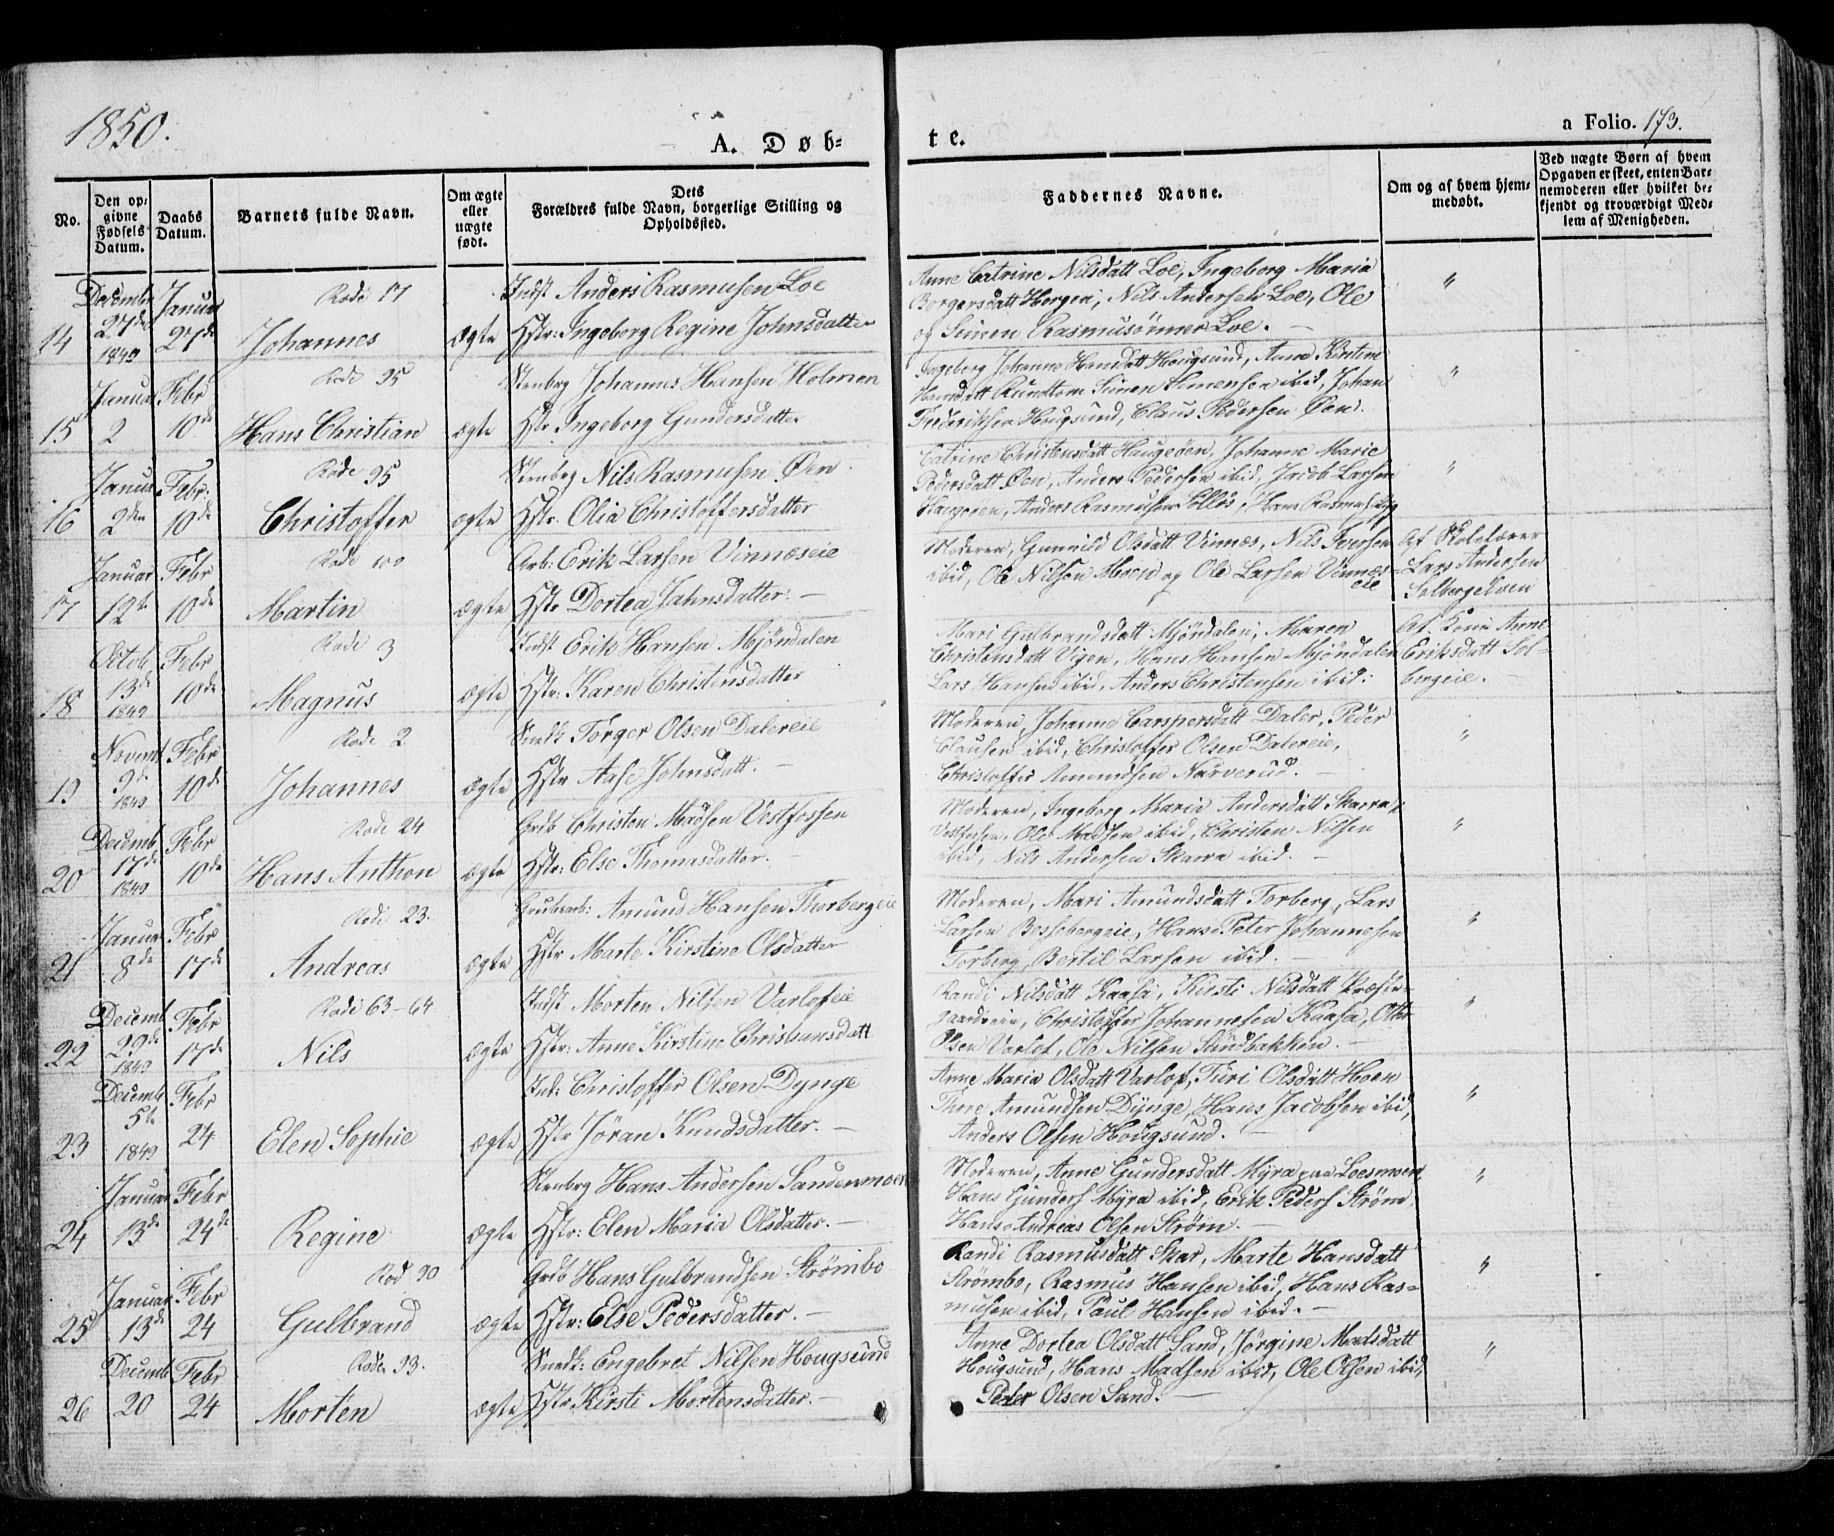 1850.
A. Døb-
te.
a Folio. 173.
No.
Den op-
givne
Fødsels
Datum.
Daabs
Datum.
Barnets fulde Navn.
Om ægte
eller
uægte
født.
Dets
Forældres fulde Navn, borgerlige Stilling og
Opholdssted.
Faddernes Navne.
Om og af hvem hjem-
medøbt.
Ved uægte Børn af hvem
Opgaven er skeet, enten Bar-
nemoderen eller hvilket be-
kjendt og troværdigt Med-
lem af Menigheden.
14
Decembr
27de
1849
Januar
27de
Rode 17
Johannes
ægte
Indst Anders Rasmusen Loe
Hstr: Ingeborg Regine Johnsdatter
Anne Catrine Nilsdatt Loe, Ingeborg Maria
Borgersdatt Horgen, Nils Andersen Loe, Ole
og Simen Rasmusønner Loe.
"
15
Januar
2
Febr
10de
Rode 95
Hans Christian
ægte
Stenbrg Johannes Hansen Holmen
Hstr Ingeborg Gundersdatter
Ingeborg Johanne Hansdatt Hougsund, Anne Kirstine
Hansdatt Rundtom Simen Simensen ibid, Johan
Frederiksen Hougsund, Claus Pedersen Øen.
"
16
Januar
2den
Febr.
10de
Rode 95
Christoffer
ægte
Stenbrg Nils Rasmusen Øen.
Hstr. Olia Christoffersdatter
Catrine Christensdatt Haugeøen, Johanne Marie
Pedersdatt Øen, Anders Pedersen ibid, Jacob Larsen
Haugeøen, Anders Rasmusen
"
17
Januar
12te
Febr
10de
Rode 100
Martin
ægte
Arb: Erik Larsen Vinnæseie
Hstr Dortea Jahnsdatter. —
Moderen, Gunnild Olsdatt Vinnæs, Nils Iversen
ibid, Ole Nilsen Moen og Ole Larsen Vinnæs-
eie
Af Skolelærer
Lars Andersen
Solbergelven
18
Octob
13de
1849
Febr
10de
Rode 3
Magnus
ægte
Indst Erik Hansen Mjöndalen
Hstr: Karen Christensdatter
Mari Gulbrandsdatt Mjöndalen, Maren
Christensdatt Vigen, Hans Hansen Mjöndalen
Lars Hansen ibid, Anders Christensen ibid:
Af Kone Anne
Eriksdatt Sol-
bergeie. —
19
Novemb
9de
1849
Febr
10de
Rode 2
Johannes
ægte
Snedk Torger Olsen Dalereie
Hstr Aase Johnsdatt. —
Moderen, Johanne Carspersdatt Daler, Peder
Clausen ibid, Christoffer Olsen Dalereie,
Christoffer Amundsen Narverud. —
"
20
Decemb
17de
1849
Febr
10de
Rode 24
Hans Anthon
ægte
Grdb Christen Madsen Vestfossen
Hstr: Else Thomasdatter. —
Moderen, Ingeborg Maria Andersdatt Skarra,
Vestfossen, Ole Madsen ibid, Christen Nilsen
ibid, Nils Andersen Skarra ibid. —
"
21
Januar
8de
Febr
17de
Rode 23.
Andreas
ægte
Grubearb: Amund Hansen Thorbergeie
Hstr Marte Kirstine Olsdatter
Moderen, Mari Amundsdatt Torberg, Lars
Larsen Bessebergeie, Hans Peter Johannesen
Torberg, Bertil Larsen ibid. —
"
22
Decemb
29de
1849
Febr
17de
Rode 63-64
Nils
ægte
Indst Morten Nilsen Varlofeie
Hstr: Anne Kirstine Christiansdatt
Randi Nilsdatt Kaasa, Kirsti Nilsdatt Præste-
gaardseie, Christoffer Johannesen Kaasa, Otter
Olsen Varlof, Ole Nilsen Sandbakken. —
"
23
Decemb
5te
1849
Febr
24
Elen Sophie
ægte
Ind: Christoffer Olsen Dynge
Hstr Jöran Knudsdatter. —
Anne Maria Olsdatt Varlof, Turi Olsdatt Hoen
Thore Amundsen Dynge, Hans Jacobsen ibid,
Anders Olsen Hougsund. —
"
24
Januar
13de
Febr
24de
Regine
ægte
Stenbrg Hans Andersen Sandenmoen
Hstr: Elen Maria Olsdatter. —
Moderen, Anne Gundersdatt Myra paa Loesmoen,
Hans Gunders Myra ibid, Erik Peders Strøm,
Hans Andreas Olsen Strøm. —
"
25
Januar
13de
Febr
24
Rod 90
Gulbrand
ægte
Grdb Hans Gulbrandsen Strömbo
Hstr: Else Pedersdatter. —
Randi Rasmusdatt Skar, Marte Hansdatt
Strömbo, Rasmus Hansen ibid, Hans Ras-
musen ibid, Paul Hansen ibid. —
"
26
Decemb
20
Febr
24
Rode 93.
Morten
ægte
Snedk: Engebret Nilsen Hougsund
Hstr Kirsti Mortensdatter. —
Anne Dortea Olsdatt Sand, Jørgine Madsdatt
Hougsund, Hans Madsen ibid, Ole Olsen ibid,
Peder Olsen Sand. —
"